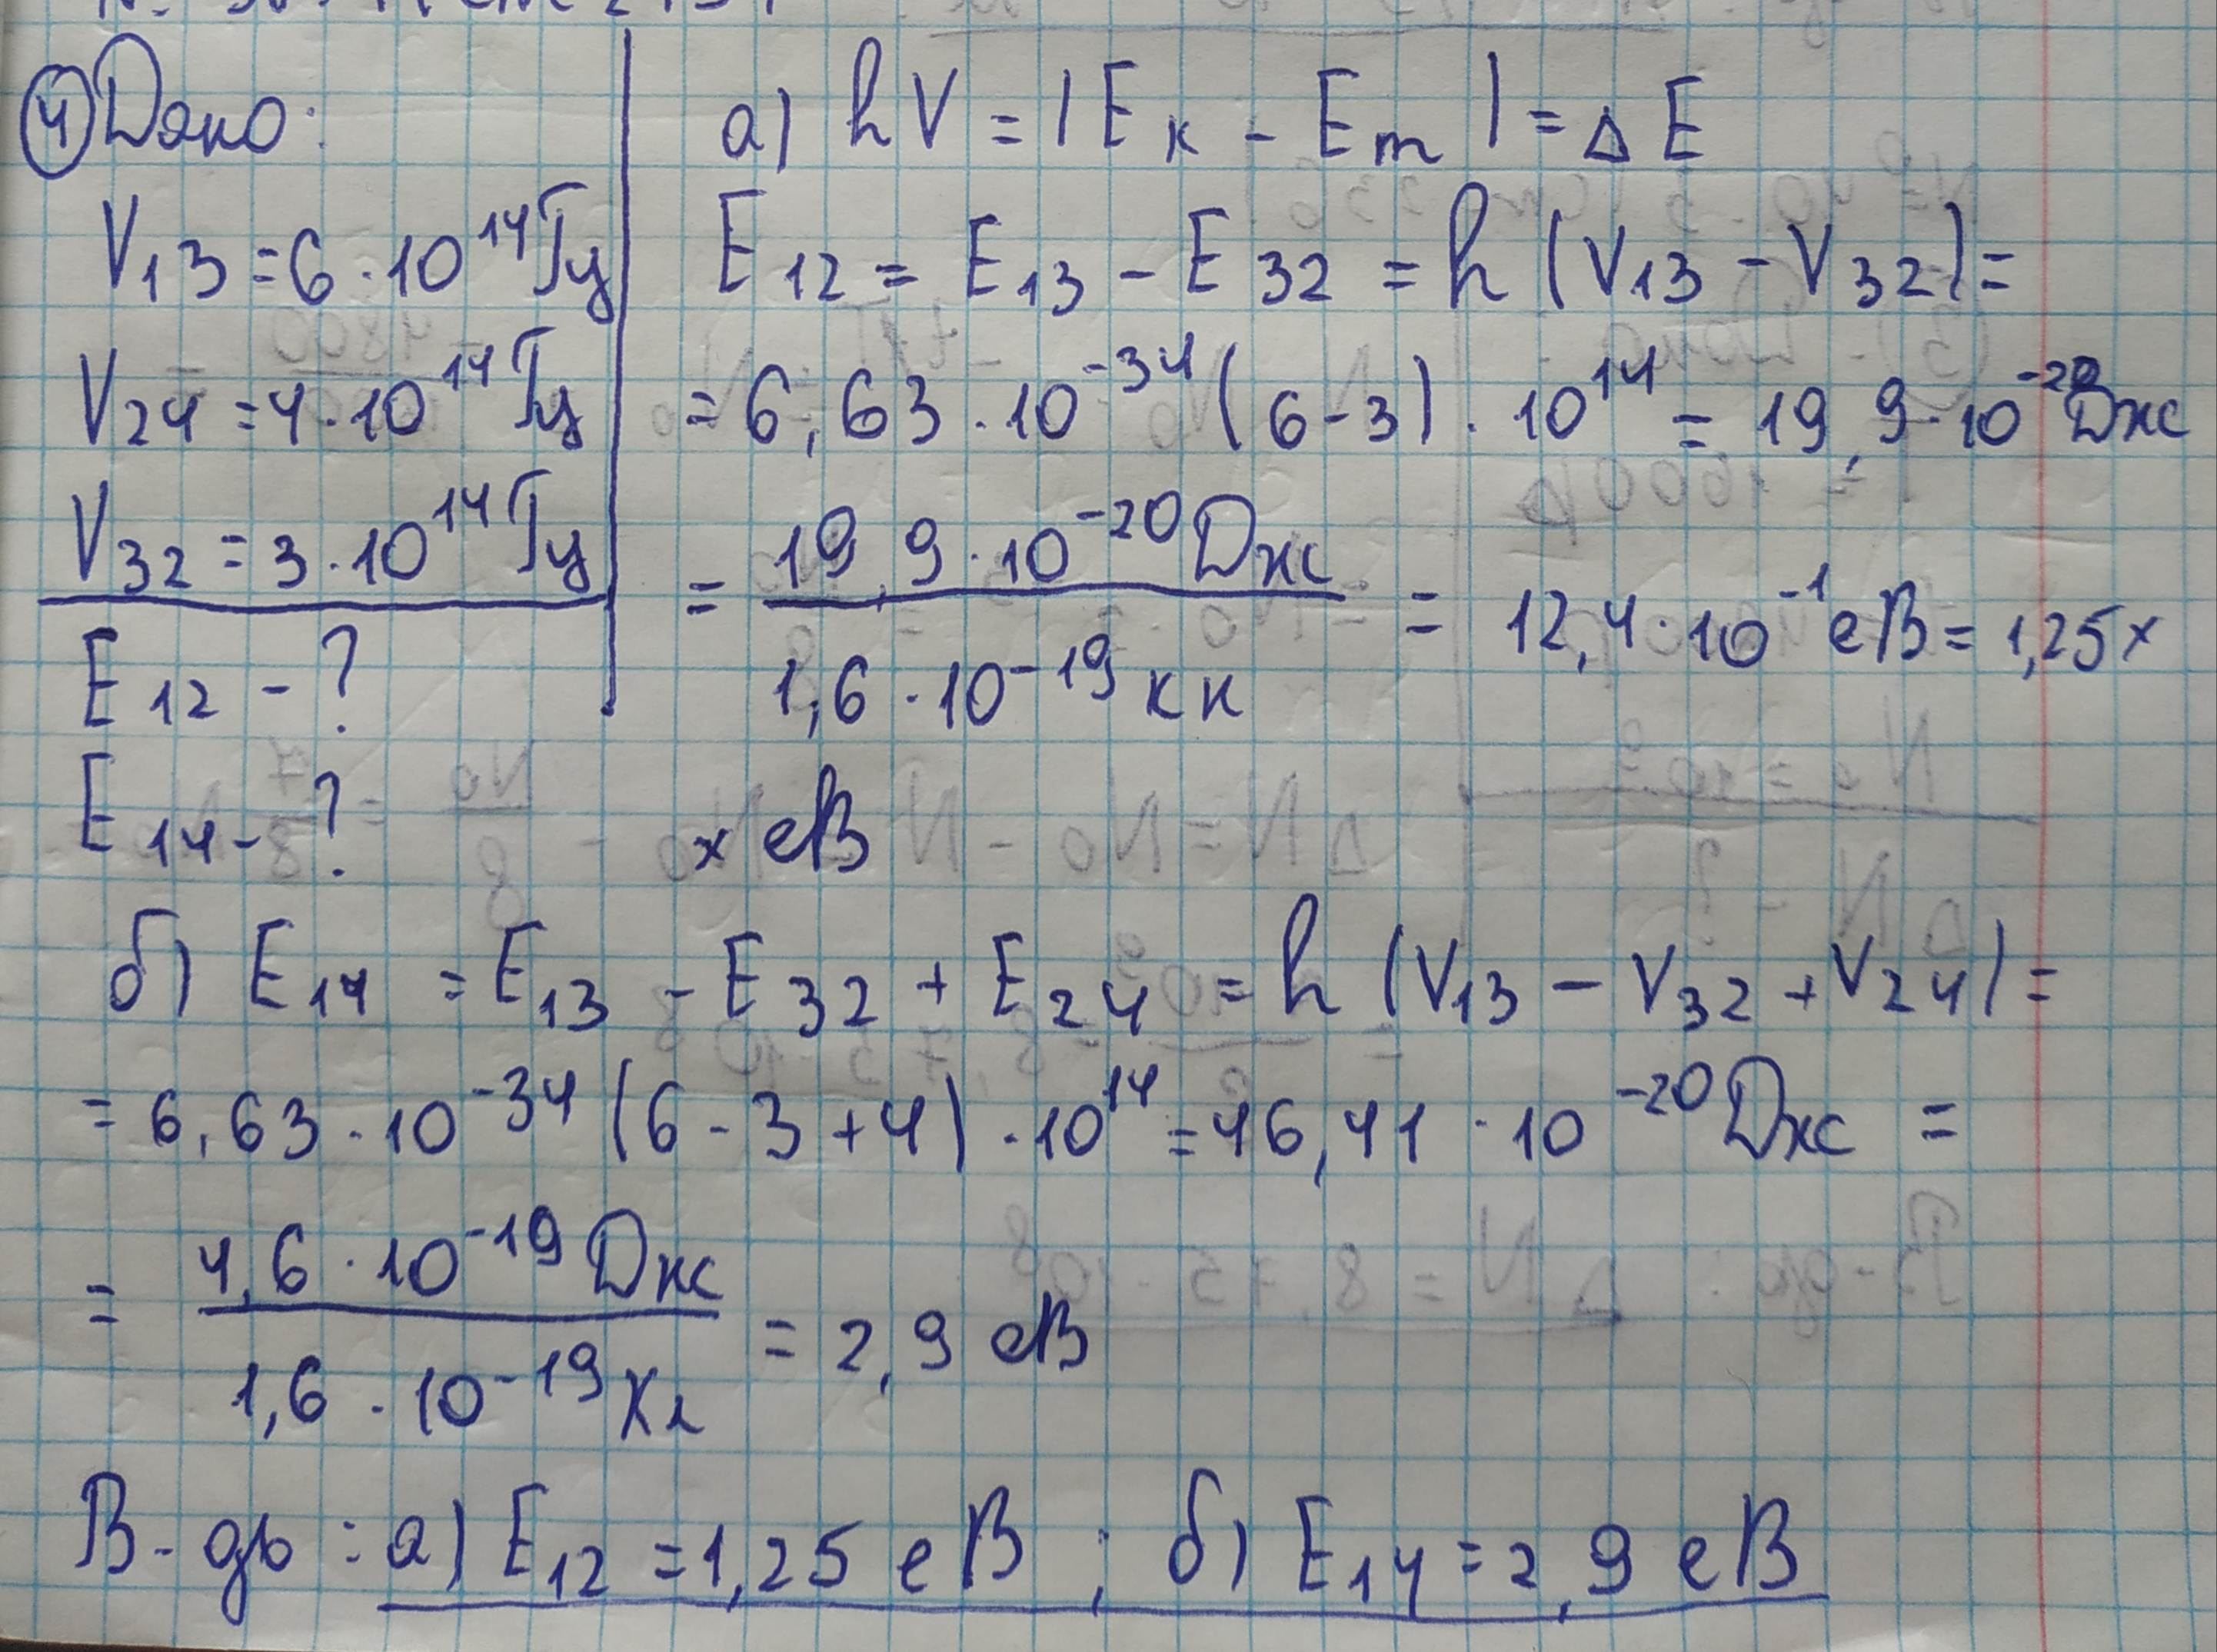 ④ Дано:
ν₁₃ = 6 · 10¹⁴ Гц
ν₂₄ = 4 · 10¹⁴ Гц
ν₃₂ = 3 · 10¹⁴ Гц
E₁₂ - ?
E₁₄ - ?
а) hν = |Eₖ - Eₘ| = ΔE
E₁₂ = E₁₃ - E₃₂ = h (ν₁₃ - ν₃₂) =
= 6,63 · 10⁻³⁴ (6 - 3) · 10¹⁴ = 19,9 · 10⁻²⁰ Дж
= 19,9 · 10⁻²⁰ Дж / 1,6 · 10⁻¹⁹ Кл = 12,4 · 10⁻¹ еВ = 1,25 ×
× еВ
б) E₁₄ = E₁₃ - E₃₂ + E₂₄ = h (ν₁₃ - ν₃₂ + ν₂₄) =
= 6,63 · 10⁻³⁴ (6 - 3 + 4) · 10¹⁴ = 46,41 · 10⁻²⁰ Дж =
= 4,6 · 10⁻¹⁹ Дж / 1,6 · 10⁻¹⁹ Кл = 2,9 еВ
В-дь: а) E₁₂ = 1,25 еВ ; б) E₁₄ = 2,9 еВ